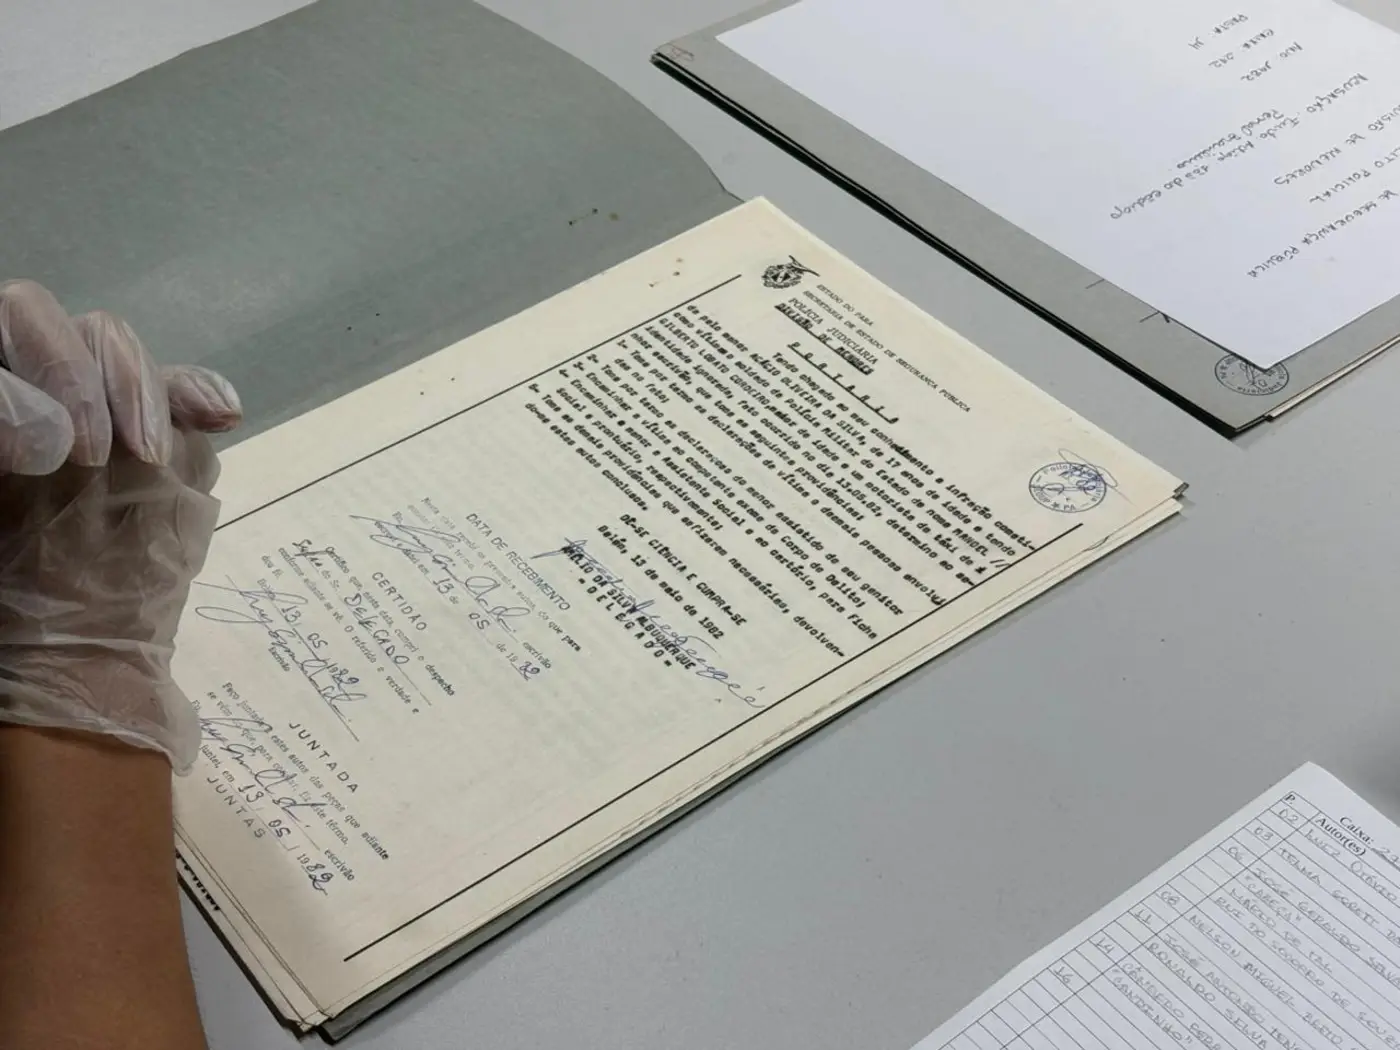 ESTADO DO PARÁ
SECRETARIA DE ESTADO DE SEGURANÇA PÚBLICA
POLÍCIA JUDICIÁRIA
DIVISÃO DE MENORES
P O R T A R I A
Tendo chegado ao seu conhecimento a infração cometi-
da pelo menor ACÁCIO OLIVEIRA DA SILVA, de 17 anos de idade e tendo
como vítima o soldado da Polícia Militar do Estado de nome MANOEL
GILBERTO LOBATO CORDEIRO, maior de idade e um motorista de táxi de
identidade ignorada, fato ocorrido no dia 13.05.82, determino ao se-
nhor escrivão, que tome as seguintes providências:
1- Tome por termo as declarações da vítima e demais pessoas envolvi
das no fato;
2- Tome por termo as declarações do menor assistido de seu genitor
3- Encaminhe a vítima ao competente exame de Corpo de Delito;
4- Encaminhe o menor a Assistente Social e ao cartório, para Ficha
Social e prontuário, respectivamente;
5- Tome as demais providências que se fizerem necessárias, devolven-
do estes autos conclusos.
DÊ-SE CIÊNCIA E CUMPRA-SE
Belém, 13 de maio de 1982
DA SILVA ALBUQUERQUE
= D E L E G A D O =
DATA DE RECEBIMENTO
Nesta data recebi os presentes autos, do que para
constar lavrei este termo.
escrivão
em 13 de 05 de 1982
CERTIDÃO
Certifico que, nesta data, cumpri o despacho
do Sr. DELEGADO
conforme adiante se vê. O referido é verdade e
dou fé.
13 05 1982
Escrivão
JUNTADA
Faço juntada a estes autos das peças que adiante
se vêem do que, para constar, fiz este termo.
escrivão
juntei, em 13 / 05 / 1982
JUNTAS
DE SEGURANÇA PÚBLICA
POLICIAL
DIVISÃO DE MENORES
ACUSAÇÃO:
Penal Brasileiro
ANO 1982
CAIXA 242
PASTA 14
Caixa:
P.
Autor(es)
02 LUIZ OTÁVIO
03 TELMA
06 JOSÉ GERALDO
"CABEÇA"
08 NELSON MIGUEL
11 JOSÉ ANTONIO
RONALDO SILVA
14
16